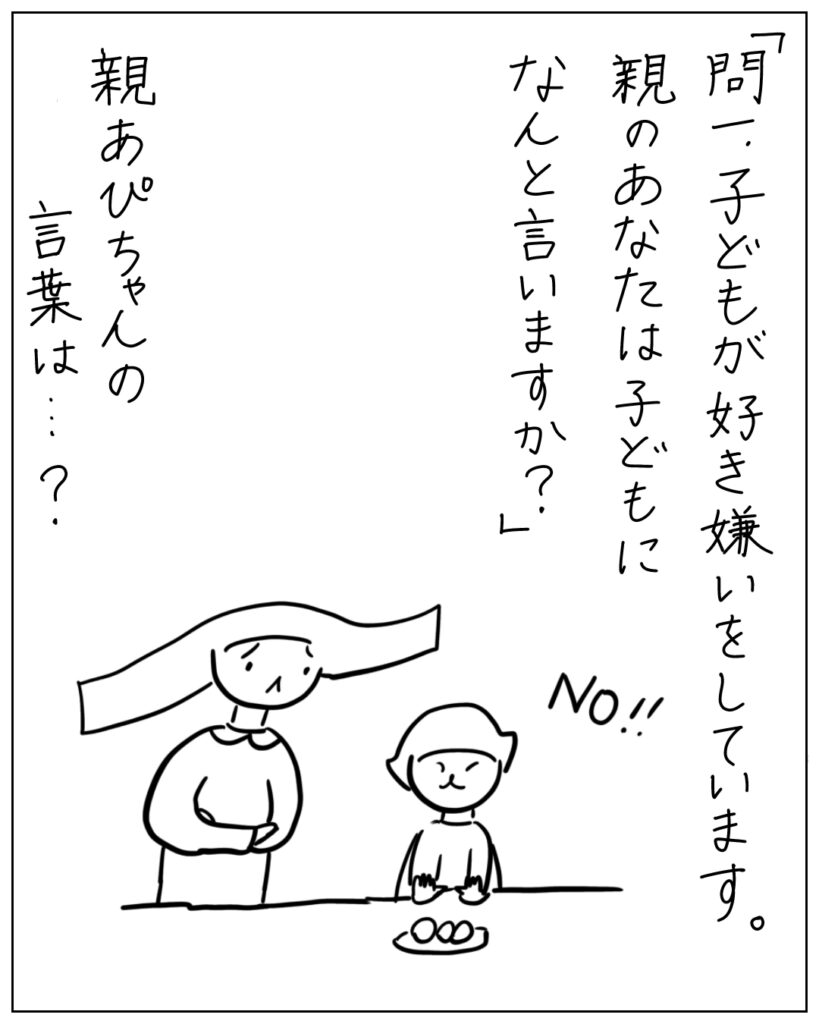 「問一.子どもが好き嫌いをしています。
親のあなたは子どもに
なんと言いますか?」
親あぴちゃんの
言葉は…?
NO!!